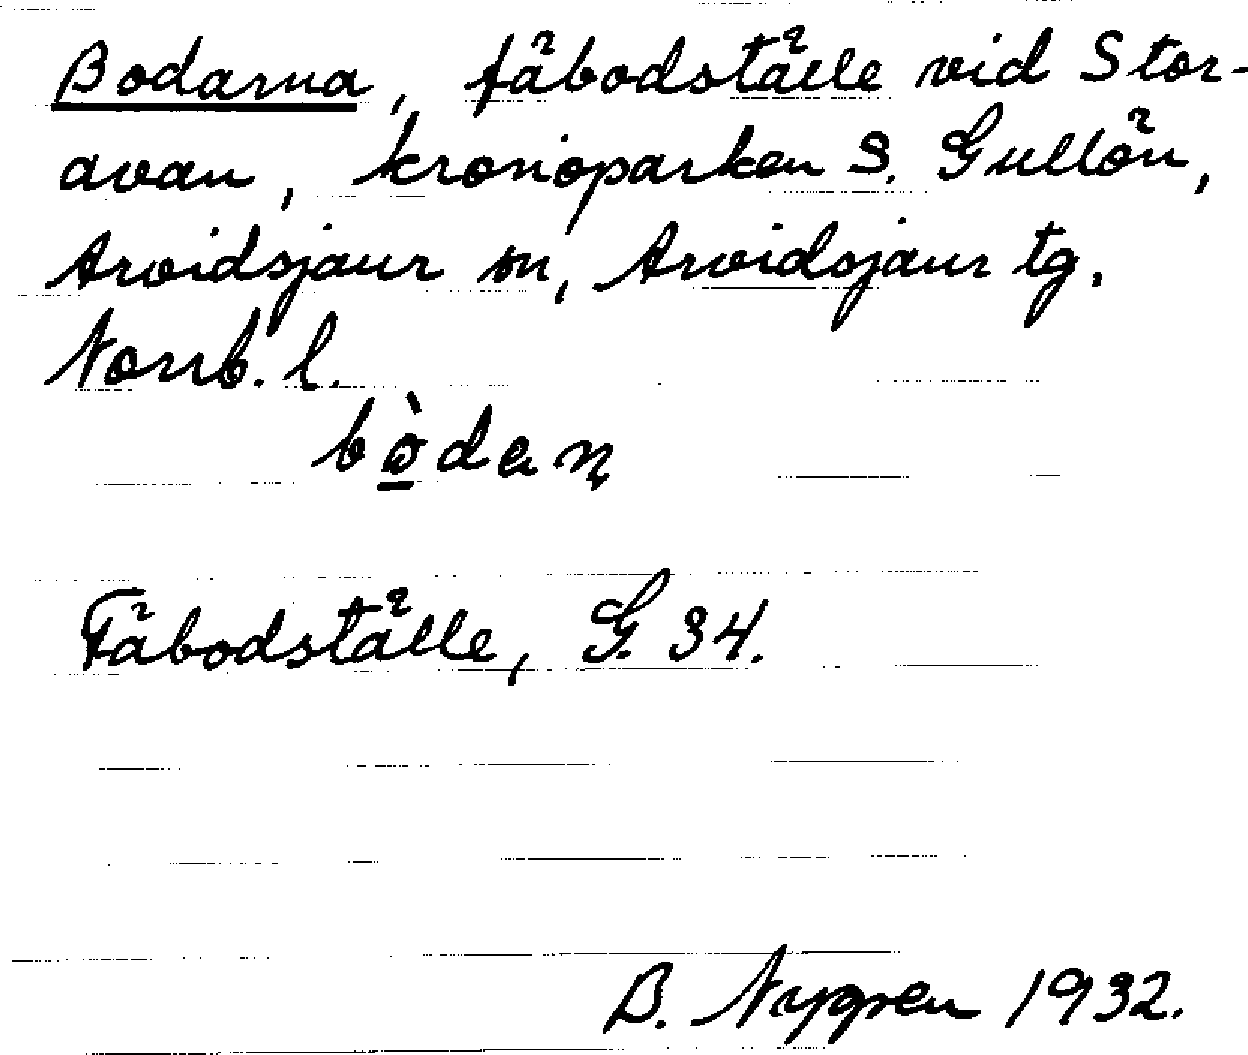 Bodarna, fäbodställe vid Stor-
avan, kronoparken S. Gullön,
Arvidsjaur sn, Arvidsjaur tg.
Norrb. l.
bò̱dan̥
Fäbodställe, G. 34.
B. Nygren 1932.